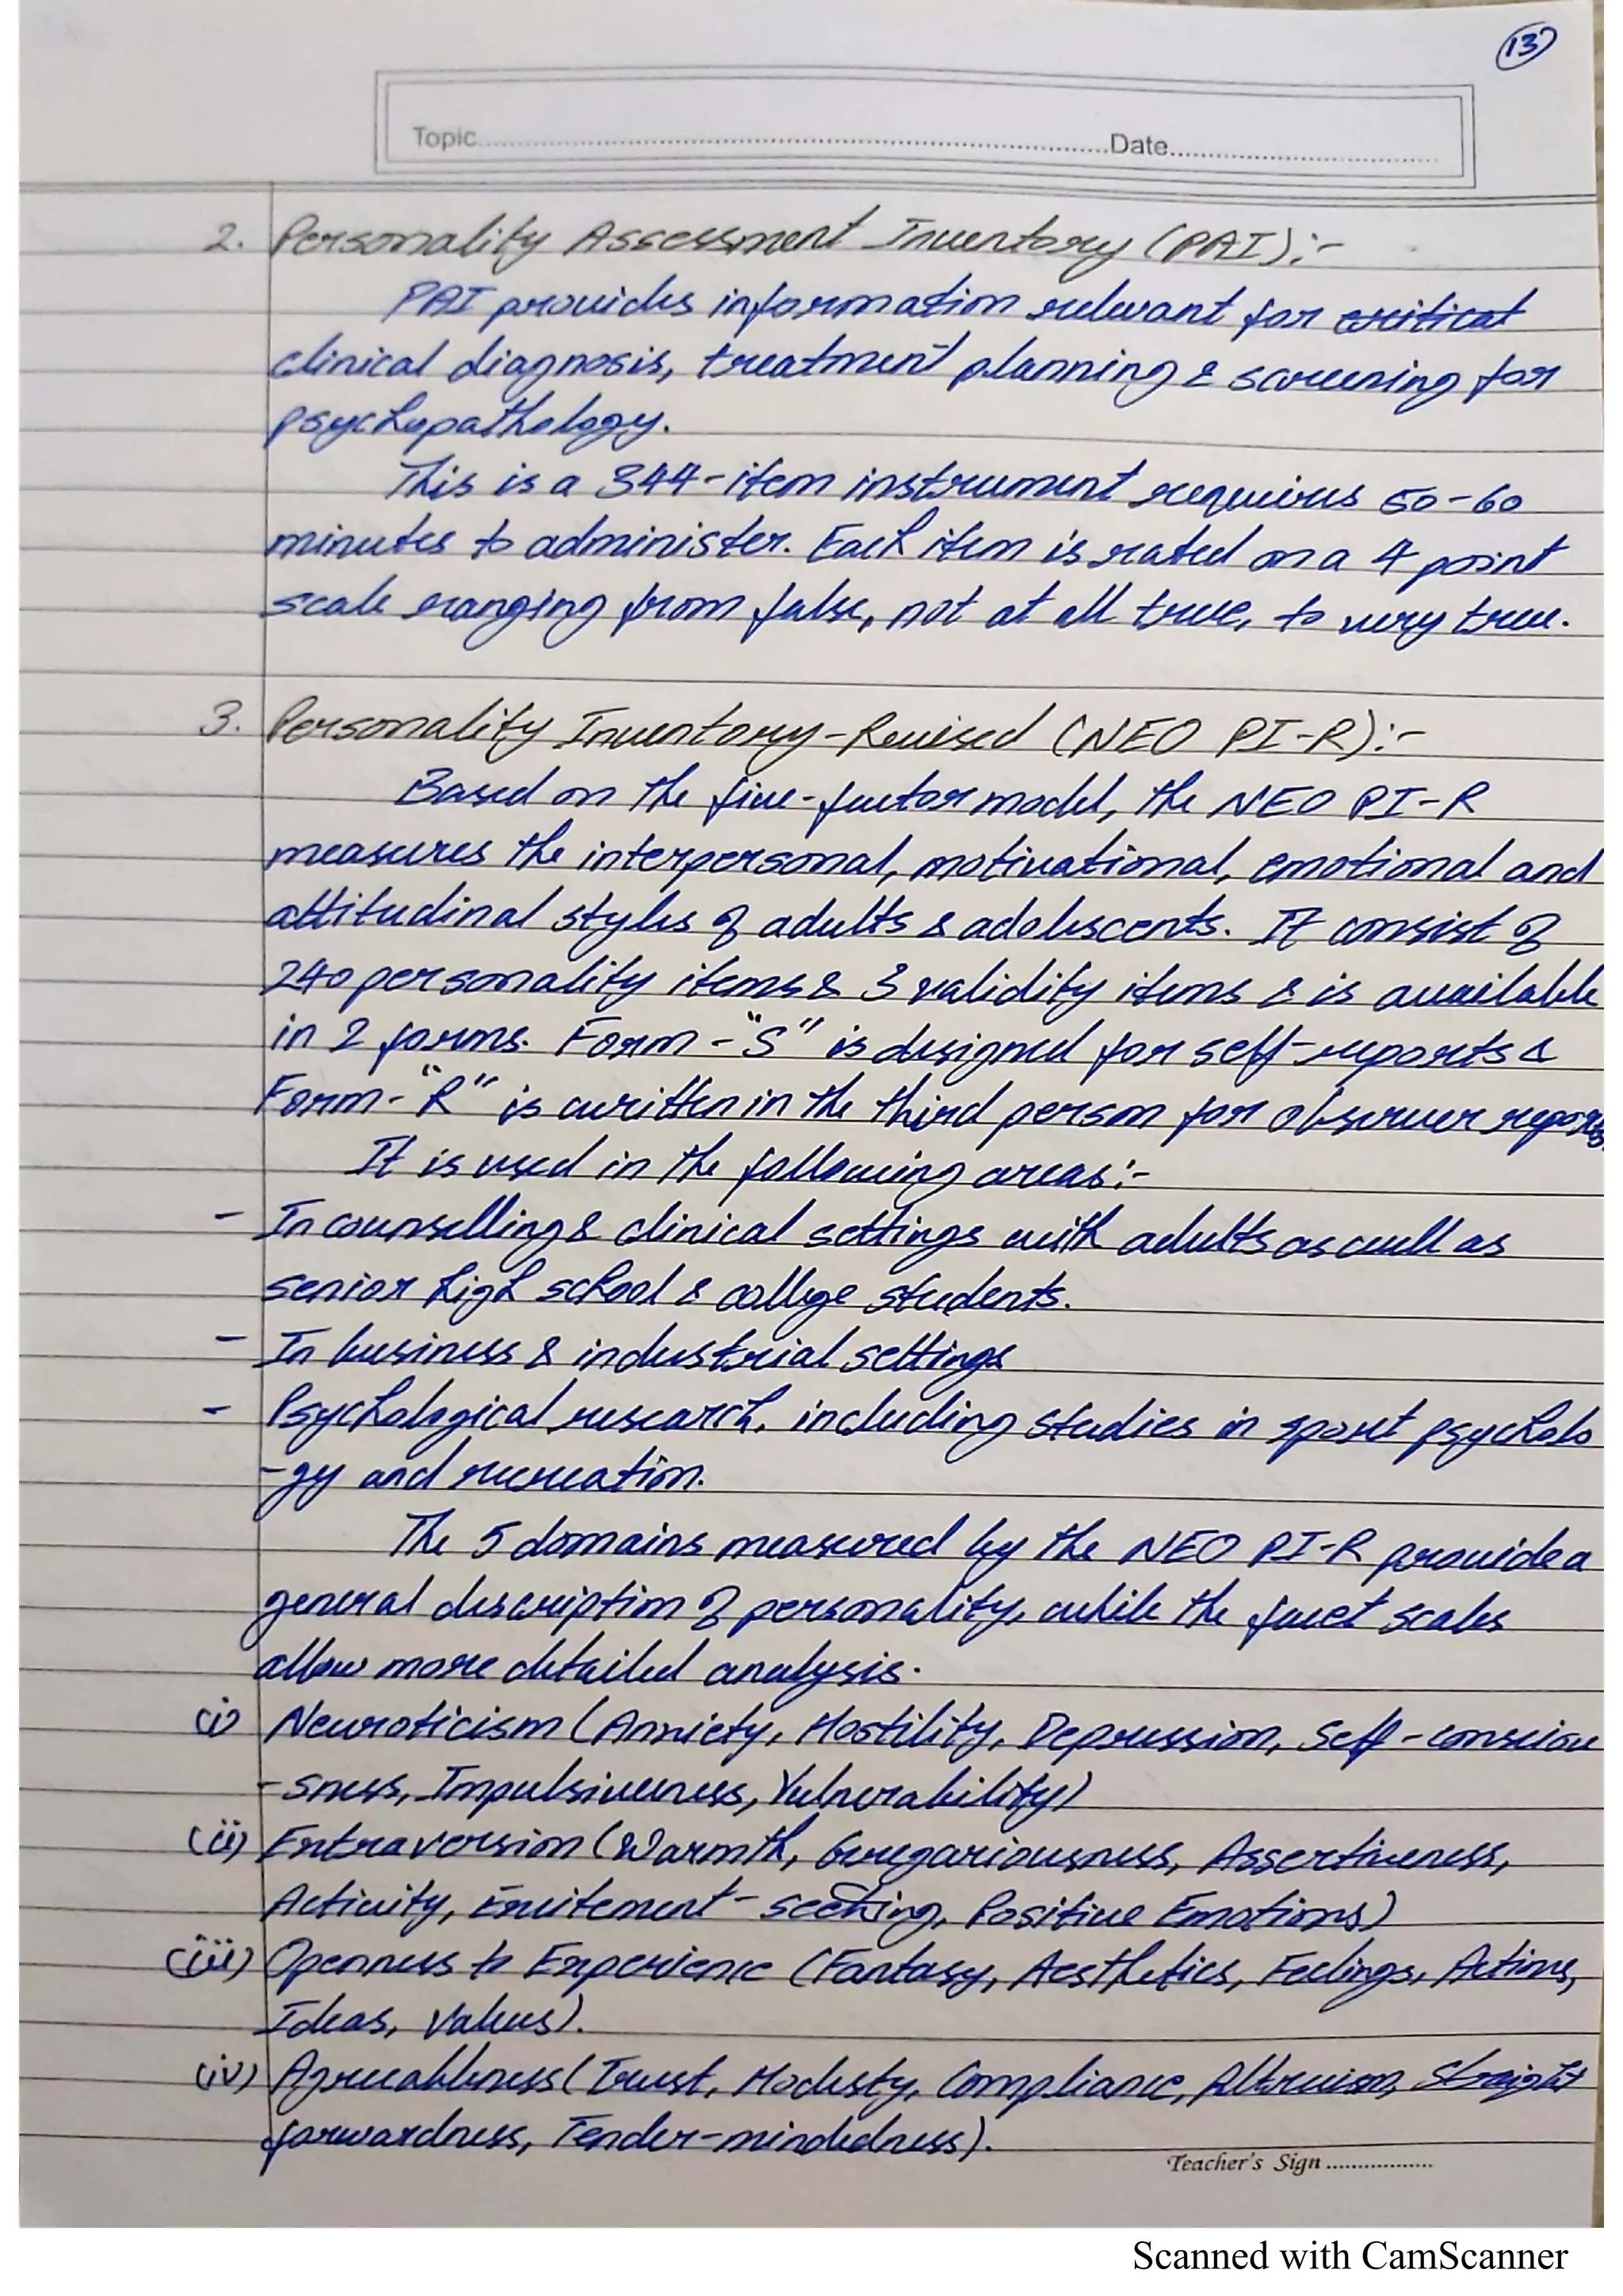 13
Topic..........Date..........
2. Personality Assessment Inventory (PAI):-
PAI provides information relevant for critical
clinical diagnosis, treatment planning & screening for
psychopathology.
This is a 344-item instrument requires 50-60
minutes to administer. Each item is rated on a 4 point
scale ranging from false, not at all true, to very true.
3. Personality Inventory-Revised (NEO PI-R):-
Based on the five-factor model, the NEO PI-R
measures the interpersonal, motivational, emotional and
attitudinal styles of adults & adolescents. It consist of
240 personality items & 3 validity items & is available
in 2 forms. Form-"S" is designed for self-reports &
Form-"R" is written in the third person for observer reports
It is used in the following areas:-
- In counselling & clinical settings with adults as well as
senior high school & college students.
- In business & industrial settings
- Psychological research, including studies in sport psycholo
-gy and recreation.
The 5 domains measured by the NEO PI-R provide a
general description of personality, while the facet scales
allow more detailed analysis.
(i) Neuroticism (Anxiety, Hostility, Depression, Self-consciou
-sness, Impulsiveness, Vulnerability)
(ii) Extraversion (Warmth, Gregariousness, Assertiveness,
Activity, Excitement-seeking, Positive Emotions)
(iii) Openness to Experience (Fantasy, Aesthetics, Feelings, Actions,
Ideas, Values).
(iv) Agreeableness (Trust, Modesty, Compliance, Altruism, Straight
forwardness, Tender-mindedness).
Teacher's Sign ..........
Scanned with CamScanner